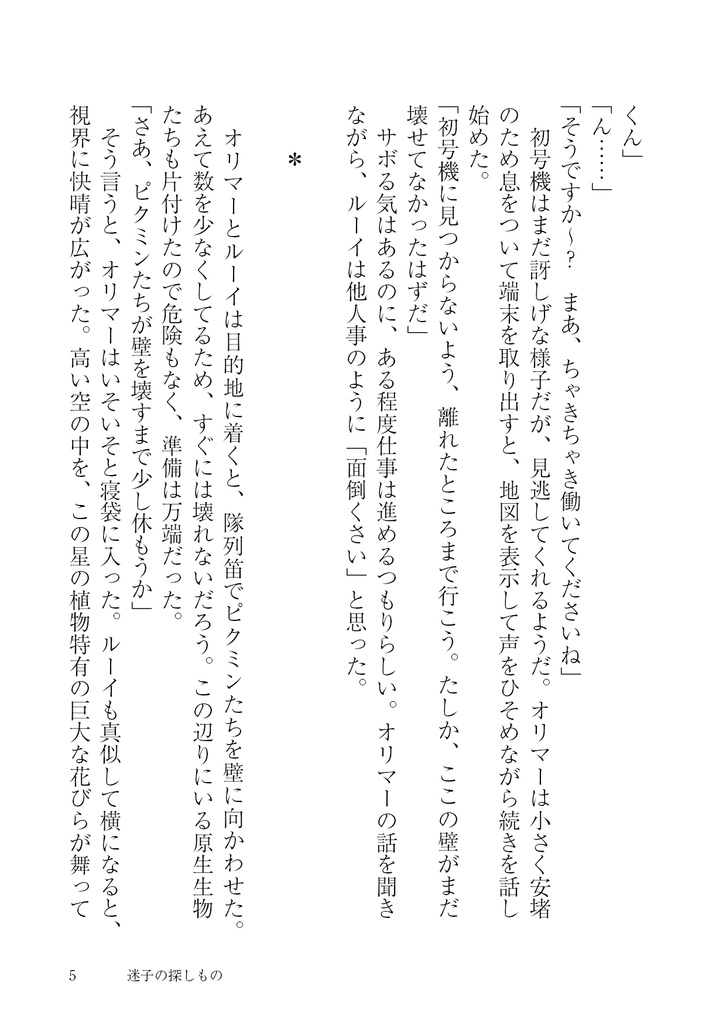 くん」
「ん……」
「そうですか～？　まあ、ちゃきちゃき働いてくださいね」
　初号機はまだ訝しげな様子だが、見逃してくれるようだ。オリマーは小さく安堵
のため息をついて端末を取り出すと、地図を表示して声をひそめながら続きを話し
始めた。
「初号機に見つからないよう、離れたところまで行こう。たしか、ここの壁がまだ
壊せてなかったはずだ」
　サボる気はあるのに、ある程度仕事は進めるつもりらしい。オリマーの話を聞き
ながら、ルーイは他人事のように「面倒くさい」と思った。
＊
　オリマーとルーイは目的地に着くと、隊列笛でピクミンたちを壁に向かわせた。
あえて数を少なくしてるため、すぐには壊れないだろう。この辺りにいる原生生物
たちも片付けたので危険もなく、準備は万端だった。
「さあ、ピクミンたちが壁を壊すまで少し休もうか」
　そう言うと、オリマーはいそいそと寝袋に入った。ルーイも真似して横になると、
視界に快晴が広がった。高い空の中を、この星の植物特有の巨大な花びらが舞って
5　迷子の探しもの